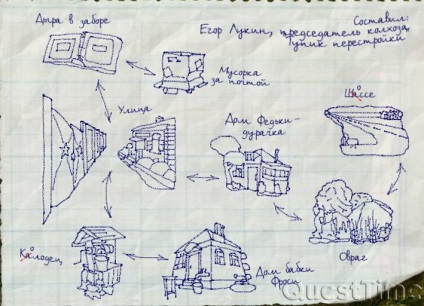 Составил:
Егор Лукин, председатель колхоза
Тупик перестройки
Дыра в заборе
Мусорка
за почтой
Улица
Дом Федьки-
дурачка
Шассе
Калодец
Дом бабки
Фроси
Овраг
QuestTime